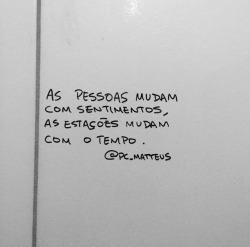 AS PESSOAS MUDAM
COM SENTIMENTOS,
AS ESTAÇÕES MUDAM
COM O TEMPO.
@PC_MATTEUS